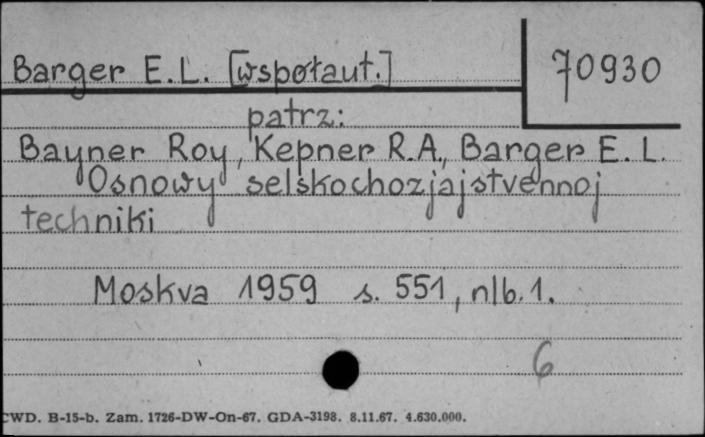 Barger E.L. [współaut.]
70930
patrz:
Bayner Roy, Kepner R.A., Barger E.L.
Osnowy selskochozjajstvennoj
techniki
Moskva 1959 s. 551, nlb. 1.
6
CWD. B-15-b. Zam. 1726-DW-On-67. GDA-3198. 8.11.67. 4.630.000.